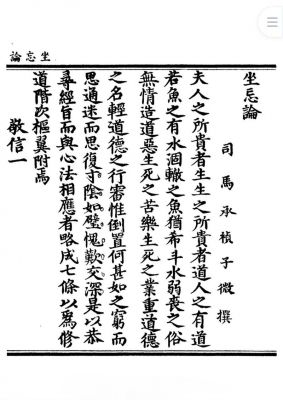 坐忘論
坐忘論
司馬承禎子微撰
夫人之所貴者生生之所貴者道人之有道
若魚之有水涸轍之魚猶希斗水弱喪之俗
無情造道惡生死之苦樂生死之業重道德
之名輕道德之行審惟倒置何甚如之窮而
思通迷而思復寸陰如璧愧歎交深是以恭
尋經旨而與心法相應者略成七條以為修
道階次樞翼附焉
敬信一